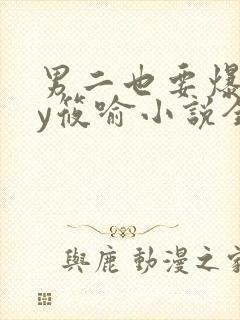 男二也要爆
y筱喻小说全
與鹿動漫之家